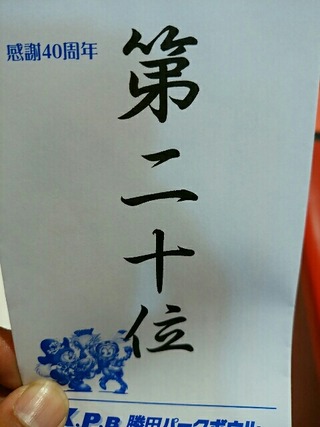 感謝40周年
第二十位
K.P.B 勝田パークボウル